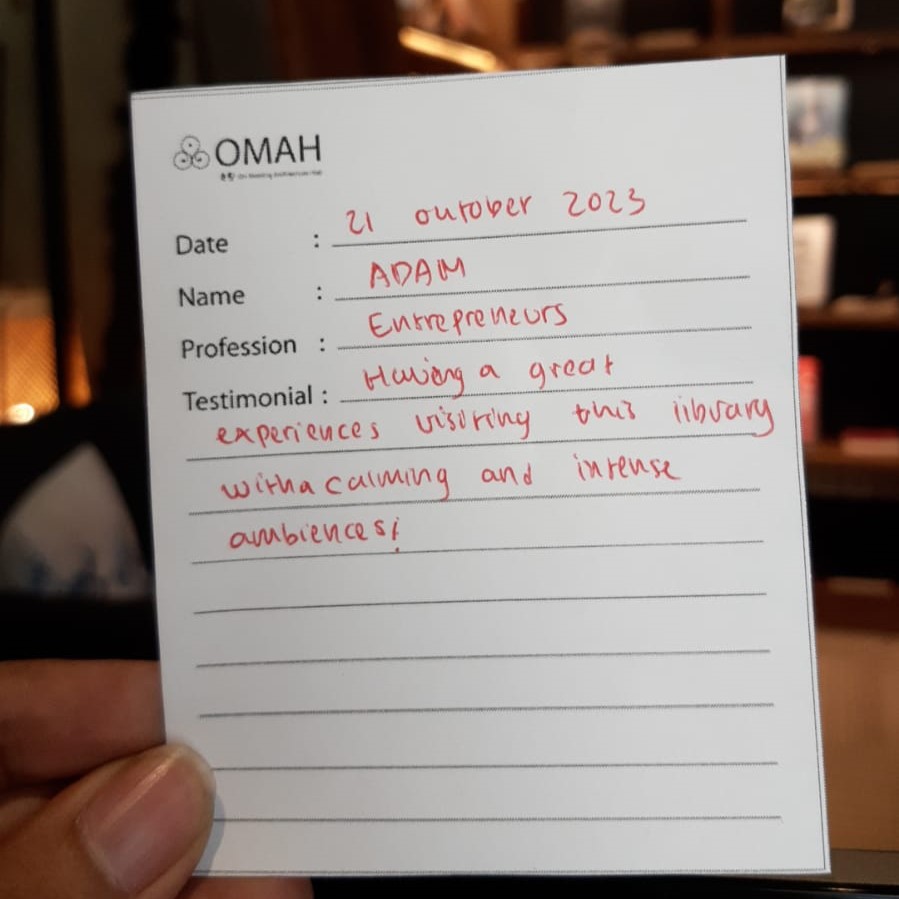 OMAH
Date : 21 October 2023
Name : ADAM
Profession : Entrepreneurs
Testimonial : Having a great
experiences visiting this library
with a calming and intense
ambiences!